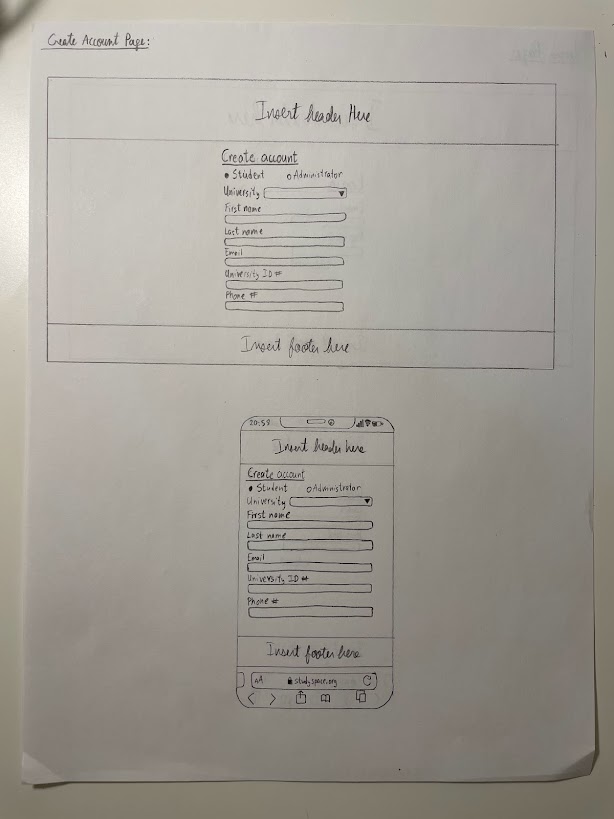 Create Account Page:
Insert header Here
Create account
Student Administrator
University
First name
Last name
Email
University ID #
Phone #
Insert footer here
20:58
Insert header here
Create account
Student Administrator
University
First name
Last name
Email
University ID #
Phone #
Insert footer here
AA studyspace.org